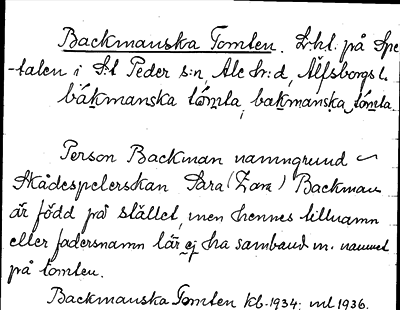 Backmanska Tomten. Lht. på Spe-
-talen i S:t Peder s:n, Ale hr:d, Älfsborgs l.
bákmanska tómta, bakmanska tómta.
Person Backman namngrund
Skådespelerskan Sara (Zara) Backman
är född på stället, men hennes tillnamn
eller fadersnamn lär ej ha samband m. namnet
på tomten.
Backmanska Tomten kb. 1934; ml 1936.